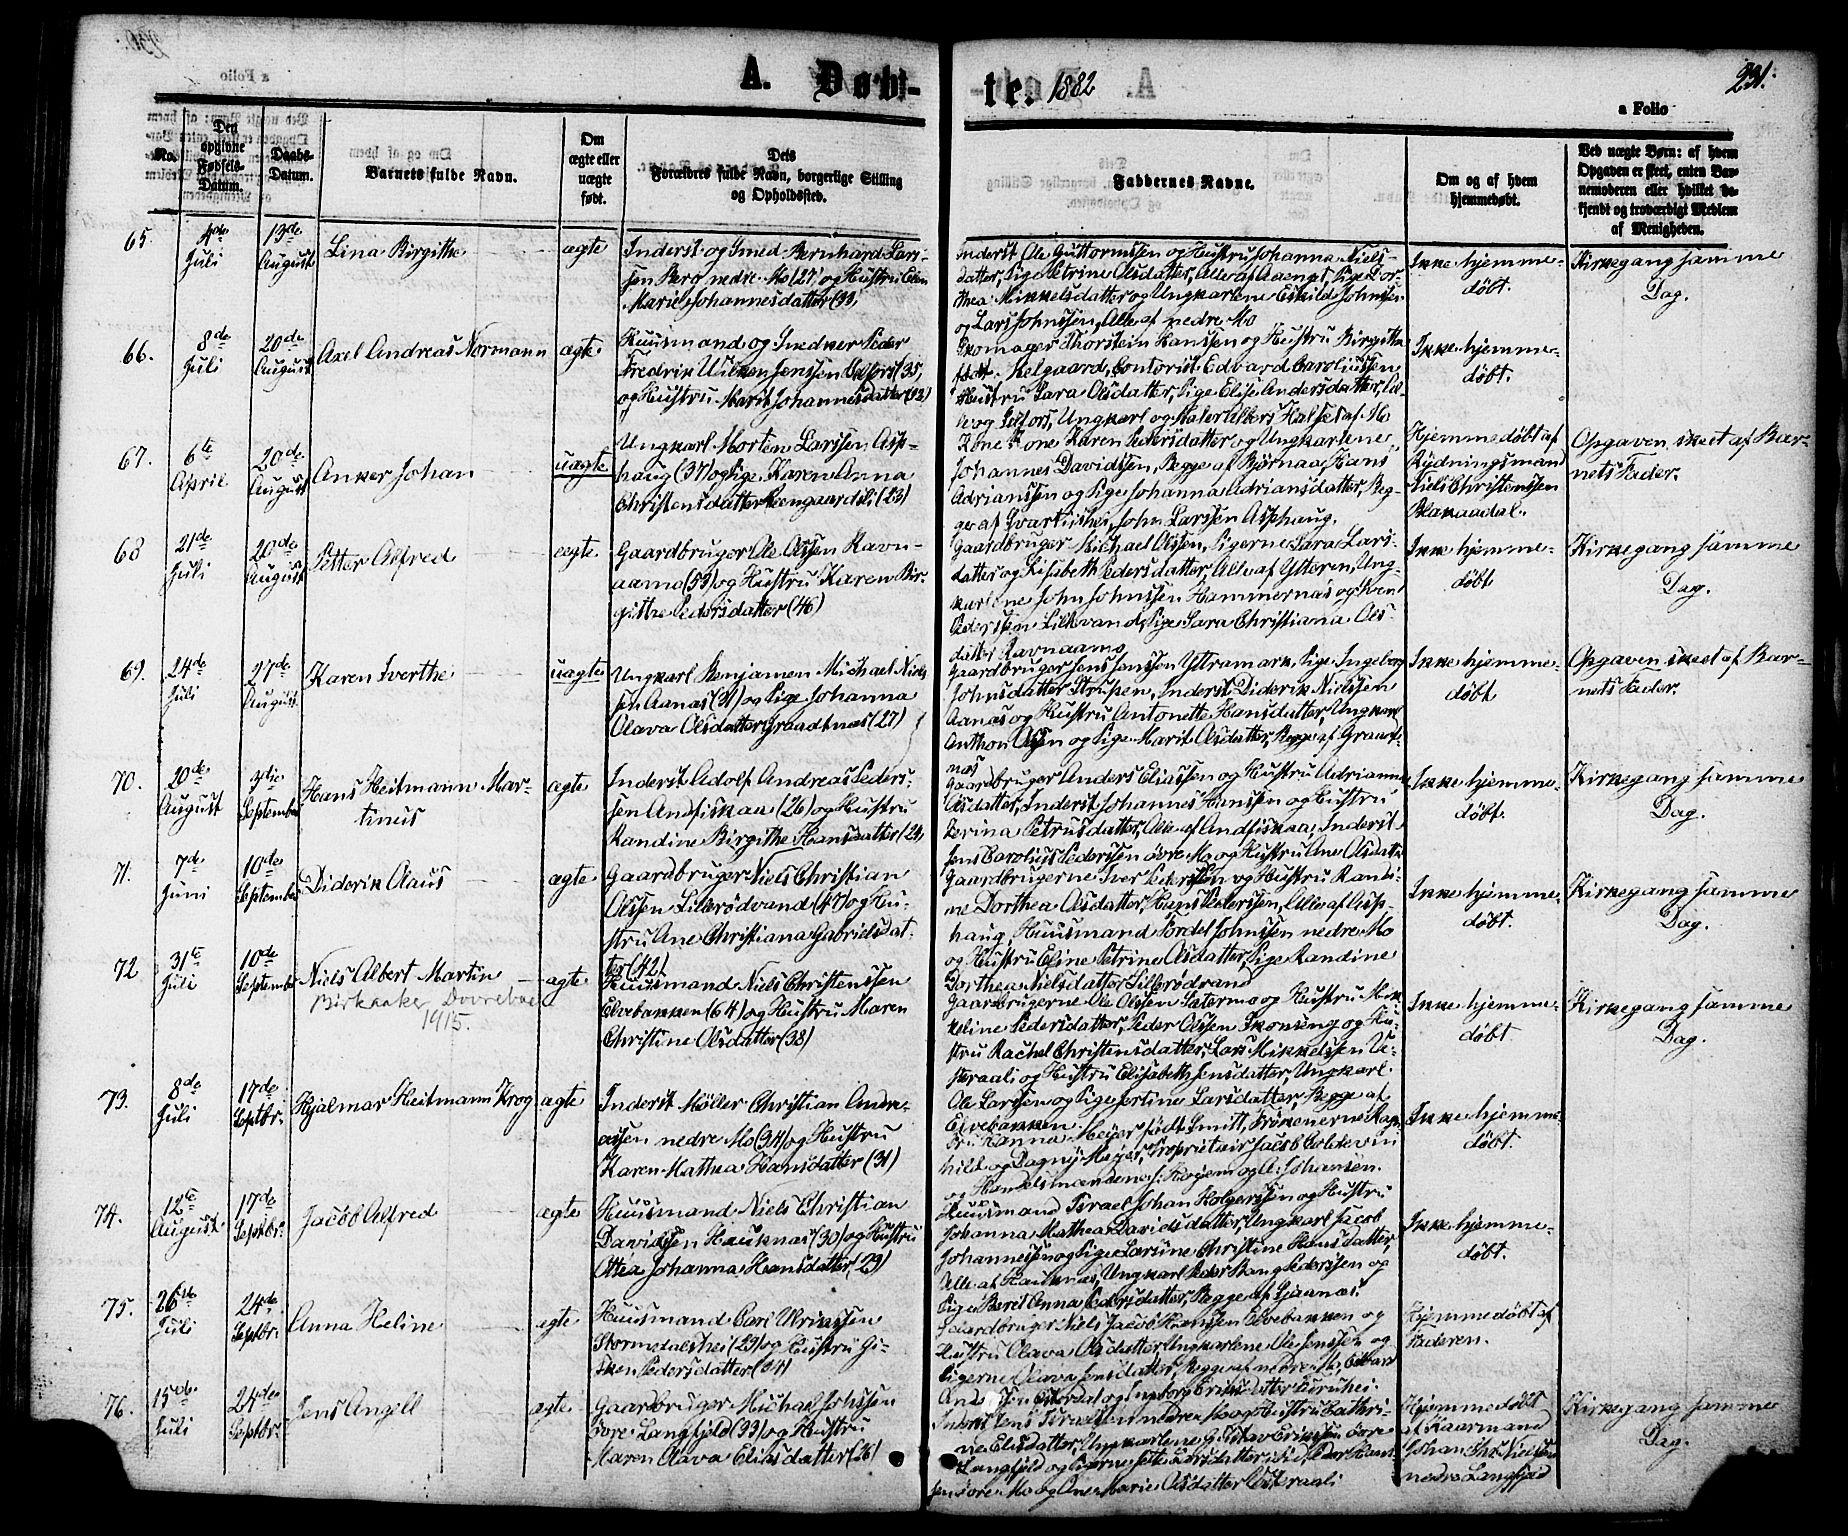 A. Døbte. 1882
231.
a Folio
No.
Den opgivne Fødsels-Datum.
Daabs-Datum.
Barnets fulde Navn.
Om ægte eller uægte født.
Dets Forældres fulde Navn, borgerlige Stilling og Opholdssted.
Faddernes Navne.
Om og af hvem hjemmedøbt.
Ved uægte Børn: af hvem Opgaven er skeet, enten Barnemoderen eller hvilket bekjendt og troværdigt Medlem af Menigheden.
65.
4de Juli
13de August
Lina Birgithe
ægte
Inderst og Smed Bernhard Lars-
sen Berg nedre Mo (27) og Hustru Elen
Marie Johannesdatter (33)
Inderst Ole Guttormssen og Hustru Johanna Niels-
datter, Pige Petrine Olsdatter, Alle af Aaenget, Pige Dor-
thea Mikkelsdatter og Ungkarlene Eskild Johnssen
og Lars Johnssen, Alle af nedre Mo
Ikke hjemme-
døbt.
Kirkegang samme
Dag.
66.
8de Juli
20de August
Axel Andreas Normann
ægte
Huusmand og Snedker Peder
Fredrik Jenssen (35)
og Hustru Marit Johannesdatter (32)
Skomager Thorstein Hanssen og Hustru Birgitha
født Helgaard, Contorist Edvard Caroliussen
Hustru Sara Olsdatter, Pige Elise Andersdatter,
Selfors, Ungkarl og Maler Albert Halset af Mo
Ikke hjemme-
døbt.
67.
6te April
20de August
Anker Johan
uægte
Ungkarl Morten Larssen Asp-
haug (37) og Pige Karen Anna
Christensdatter (23)
Kone Karen Pedersdatter og Ungkarlene
Johannes Davidssen, Begge af Bjørnaa, Hans
Adrianssen og Pige Johanna Adriansdatter, Beg-
ge af Svartishei, John Larssen Asphaug.
Hjemmedøbt af
Rydningsmand
Niels Christenssen
Blakaadal.
Opgaven skeet af Bar-
nets Fader.
68
21de Juli
20de August
Petter Alfred
ægte
Gaardbruger Ole Olssen Ravn-
aamo (53) og Hustru Karen Bir-
gitthe Pedersdatter (46)
Gaardbruger Michael Olssen, Pigerne Sara Lars-
datter og Lisabeth Pedersdatter, Alle af Ytteren, Ung-
karlene John Johnssen Hammernæs og Sven
Pederssen Lillevand, Pige Sara Christiana Ols-
datter Ravnaamo
Ikke hjemme-
døbt
Kirkegang samme
Dag.
69.
24de Juli
27de August
Karen Iverthe
uægte
Ungkarl Benjamen Michael Niels-
sen Aanæs (31) og Pige Johanna
Olava Olsdatter Graadtnæs (27)
Gaardbruger Jens Jenssen Yttramark, Pige Ingeborg
Johnsdatter Strupen, Inderst Diderik Nielssen
Aanæs og Hustru Antonette Hansdatter, Ungkarl
Anthon Olsen og Pige Marit Olsdatter, Begge af Graat-
næs
Ikke hjemme-
døbt
Opgaven skeet af Bar-
nets Fader.
70.
20de August
3die September
Hans Heitmann Mar-
tinus
ægte
Inderst Adolf Andreas Peders-
sen Andfiskaa (26) og Hustru
Randine Birgithe Hansdatter (24)
Gaardbruger Anders Eliassen og Hustru Adrianne
Olsdatter, Inderst Johannes Hanssen og Hustru
Berina Petrusdatter, Alle af Andfiskaa, Inderst
Jens Carolius Pederssen øvre Mo og Hustru Ane Olsdatter
Ikke hjemme-
døbt.
Kirkegang samme
Dag.
71.
7de Juni
10de September
Diderik Olaus
ægte
Gaardbruger Niels Christian
Olssen Lillerødvand (47) og Hu-
stru Ane Christiana Gabrielsdat-
ter (42)
Gaardbrugerne Iver Pederssen og Hustru Randi-
ne Dorthea Olsdatter, Hans Pederssen, Alle af Asp-
haug, Huusmand Tordel Johnssen nedre Mo
og Hustru Eline Petrine Olsdatter, Pige Randine
Dorthea Nielsdatter Lillerødvand
Ikke hjemme-
døbt.
Kirkegang samme
Dag.
72
31te Juli
10de September
Niels Albert Martin
Birkaaker Dovrebane
1915.
ægte
Huusmand Niels Christenssen
Elvebakken (64) og Hustru Maren
Christine Olsdatter (38)
Gaardbrugerne Ole Olssen Sætermo og Hustru Mik-
keline Pedersdatter, Peder Olssen Skonseng og Hu-
stru Rachel Christensdatter, Lars Mikkelssen Ve-
steraali og Hustru Elisabeth Jensdatter, Ungkarl
Ole Larssen og Pige Jertine Larsdatter, Begge af
Elvebakken
Ikke hjemme-
døbt.
Kirkegang samme
Dag.
73.
8de Juli
17de Septbr.
Hjalmar Heitmann Krog
ægte
Inderst Møller Christian Andre-
assen nedre Mo (34) og Hustru
Karen Mathea Hansdatter (31)
Fru Hanna Meyer født Smitt, Frøknerne Rag-
hild og Dagny Meyer, Proprietair Jacob Coldevin
og Handelsmændene J. Hagen og A. Johansen.
Ikke hjemme-
døbt.
74.
12te August
17de Septbr.
Jacob Alfred
ægte
Huusmand Niels Christian
Davidssen Hauknæs (30) og Hustru
Ottea Johanna Hansdatter (29)
Huusmand Israel Johan Holgerssen og Hustru
Johanna Mathea Davidsdatter, Ungkarl Jacob
Johannessen og Pige Larsine Christine Hansdatter,
Alle af Hauknæs, Ungkarl Peder Bang Pederssen og
Pige Beret Anna Pedersdatter, Begge af Sjaanæs.
Ikke hjemme-
døbt.
75.
26de Juli
24de Septbr.
Anna Heline
ægte
Huusmand Carl Ulrikssen
Stormdalshei (29) og Hustru Gi-
sken Pedersdatter (34)
Gaardbruger Niels Jacob Hanssen Elvebakken og
Hustru Olava Olsdatter, Ungkarlene Ole Jenssen og
Pigerne Olava Jensdatter, Begge af nedre Mo,
Hjemmedøbt af
Faderen.
76.
15de Juli
24de Septbr.
Jens Angell
ægte
Gaardbruger Michael Johssen
øvre Langfjeld (33) og Hustru
Maren Olava Eliasdatter (26)
Inderst Jens Israelssen nedre Mo og Hustru Cathri-
ne Elisdatter, Ungkarlene Gustav Erikssen øvre
Langfjeld og
sen øvre Mo og Ane Marie Olsdatter Vesteraali
Hjemmedøbt
af Kaarmand
Johan Nielssen
nedre Langfjeld
Kirkegang samme
Dag.